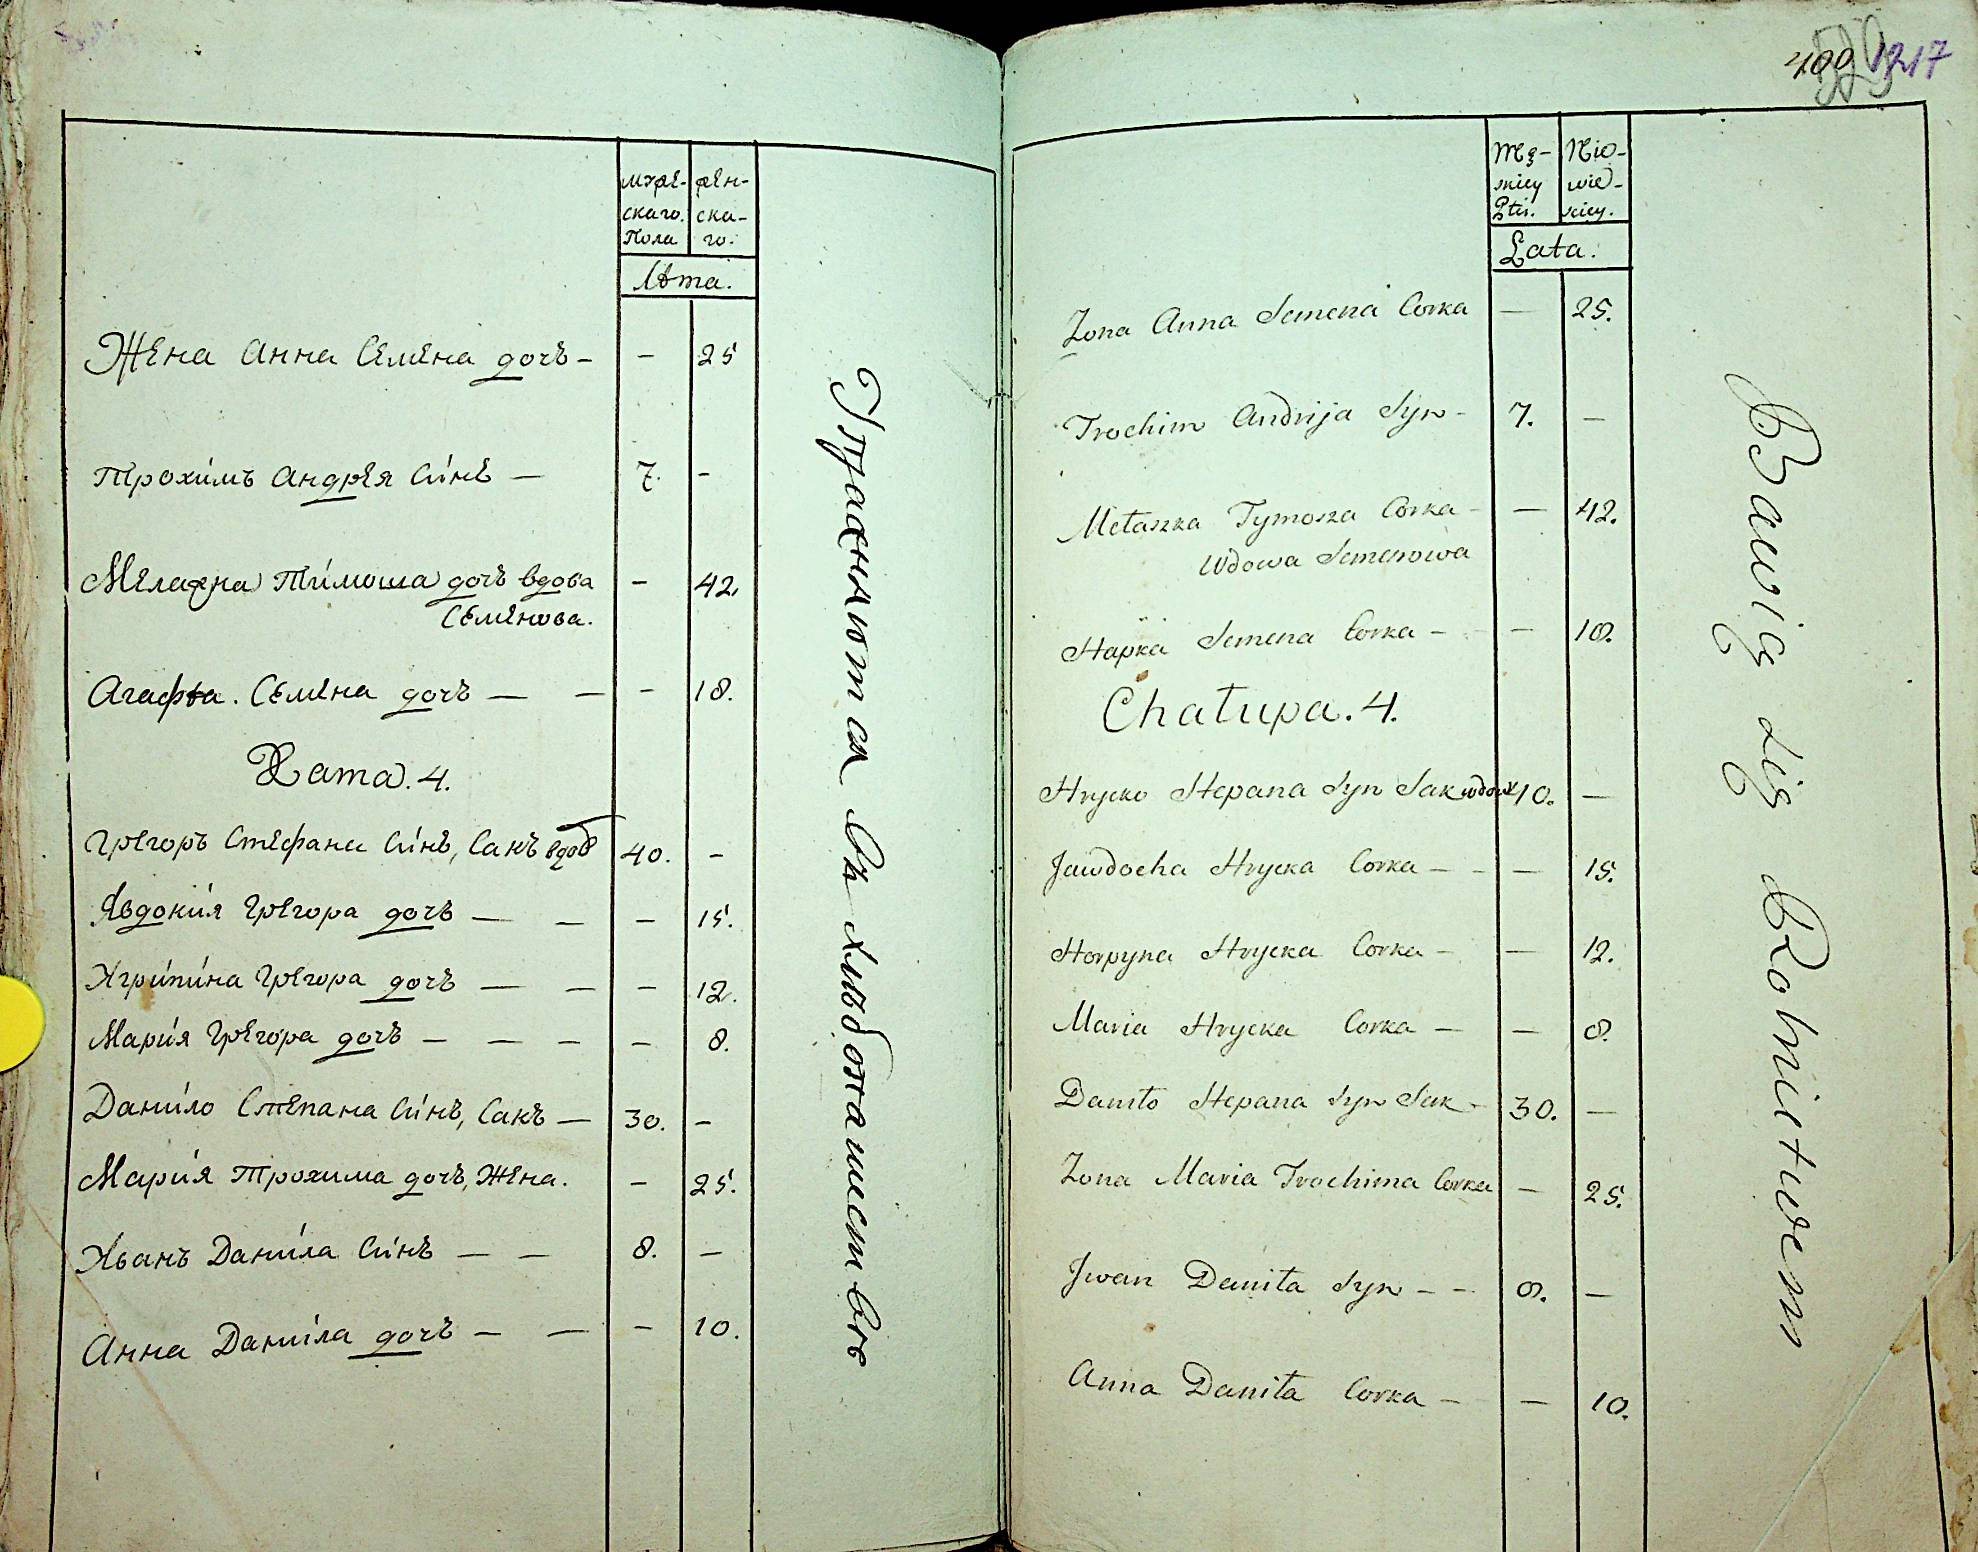 муже-
скаго.
Пола
жен-
ска-
го.
Лѣта.
Жена Анна Семена дочъ – – 25
Трохимъ Андрея Синъ – 7. –
Мелашка Тимоша дочъ вдова – 42.
Семенова.
Агафѣа. Семена дочъ – – – 18.
Хата. 4.
Грегоръ Стефана Синъ, Сакъ вдов 40. –
Явдокия Грегора дочъ – – – 15.
Агрипина Грегора дочъ – – – 12.
Мария Грегора дочъ – – – – 8.
Данило Степана Синъ, Сакъ – 30. –
Мария Трохима дочъ, Жена. – 25.
Иванъ Данила Синъ – – 8. –
Анна Данила дочъ – – – 10.
Упражняются въ хлѣбопашествѣ
400 1217
Mę-
skiey
Płci.
Nie-
wie-
sciey.
Lata.
Zona Anna Semena Corka – 25.
Trochim Andrija Syn – 7. –
Mełaszka Tymosza Corka – – 42.
Wdowa Semenowa
Hapka Semena Corka – – 18.
Chałupa. 4.
Hrycko Stepana Syn Sak wdow 40. –
Jawdocha Hrycka Corka – – – 15.
Horpyna Hrycka Corka – – 12.
Maria Hrycka Corka – – 8.
Daniło Stepana Syn Sak – 30. –
Zona Maria Trochima Corka – 25.
Jwan Daniła Syn – – 8. –
Anna Daniła Corka – – 10.
Bawią się Rolnictwem